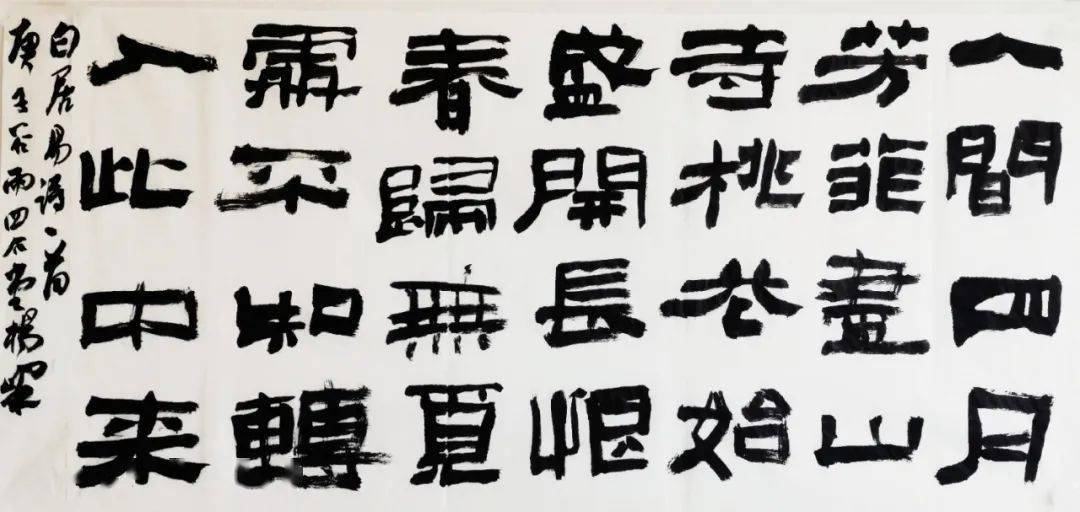 人間四月
芳菲盡山
寺桃花始
盛開長恨
春歸無覓
處不知轉
入此中來
白居易詩一首
庚子谷雨四堂楊